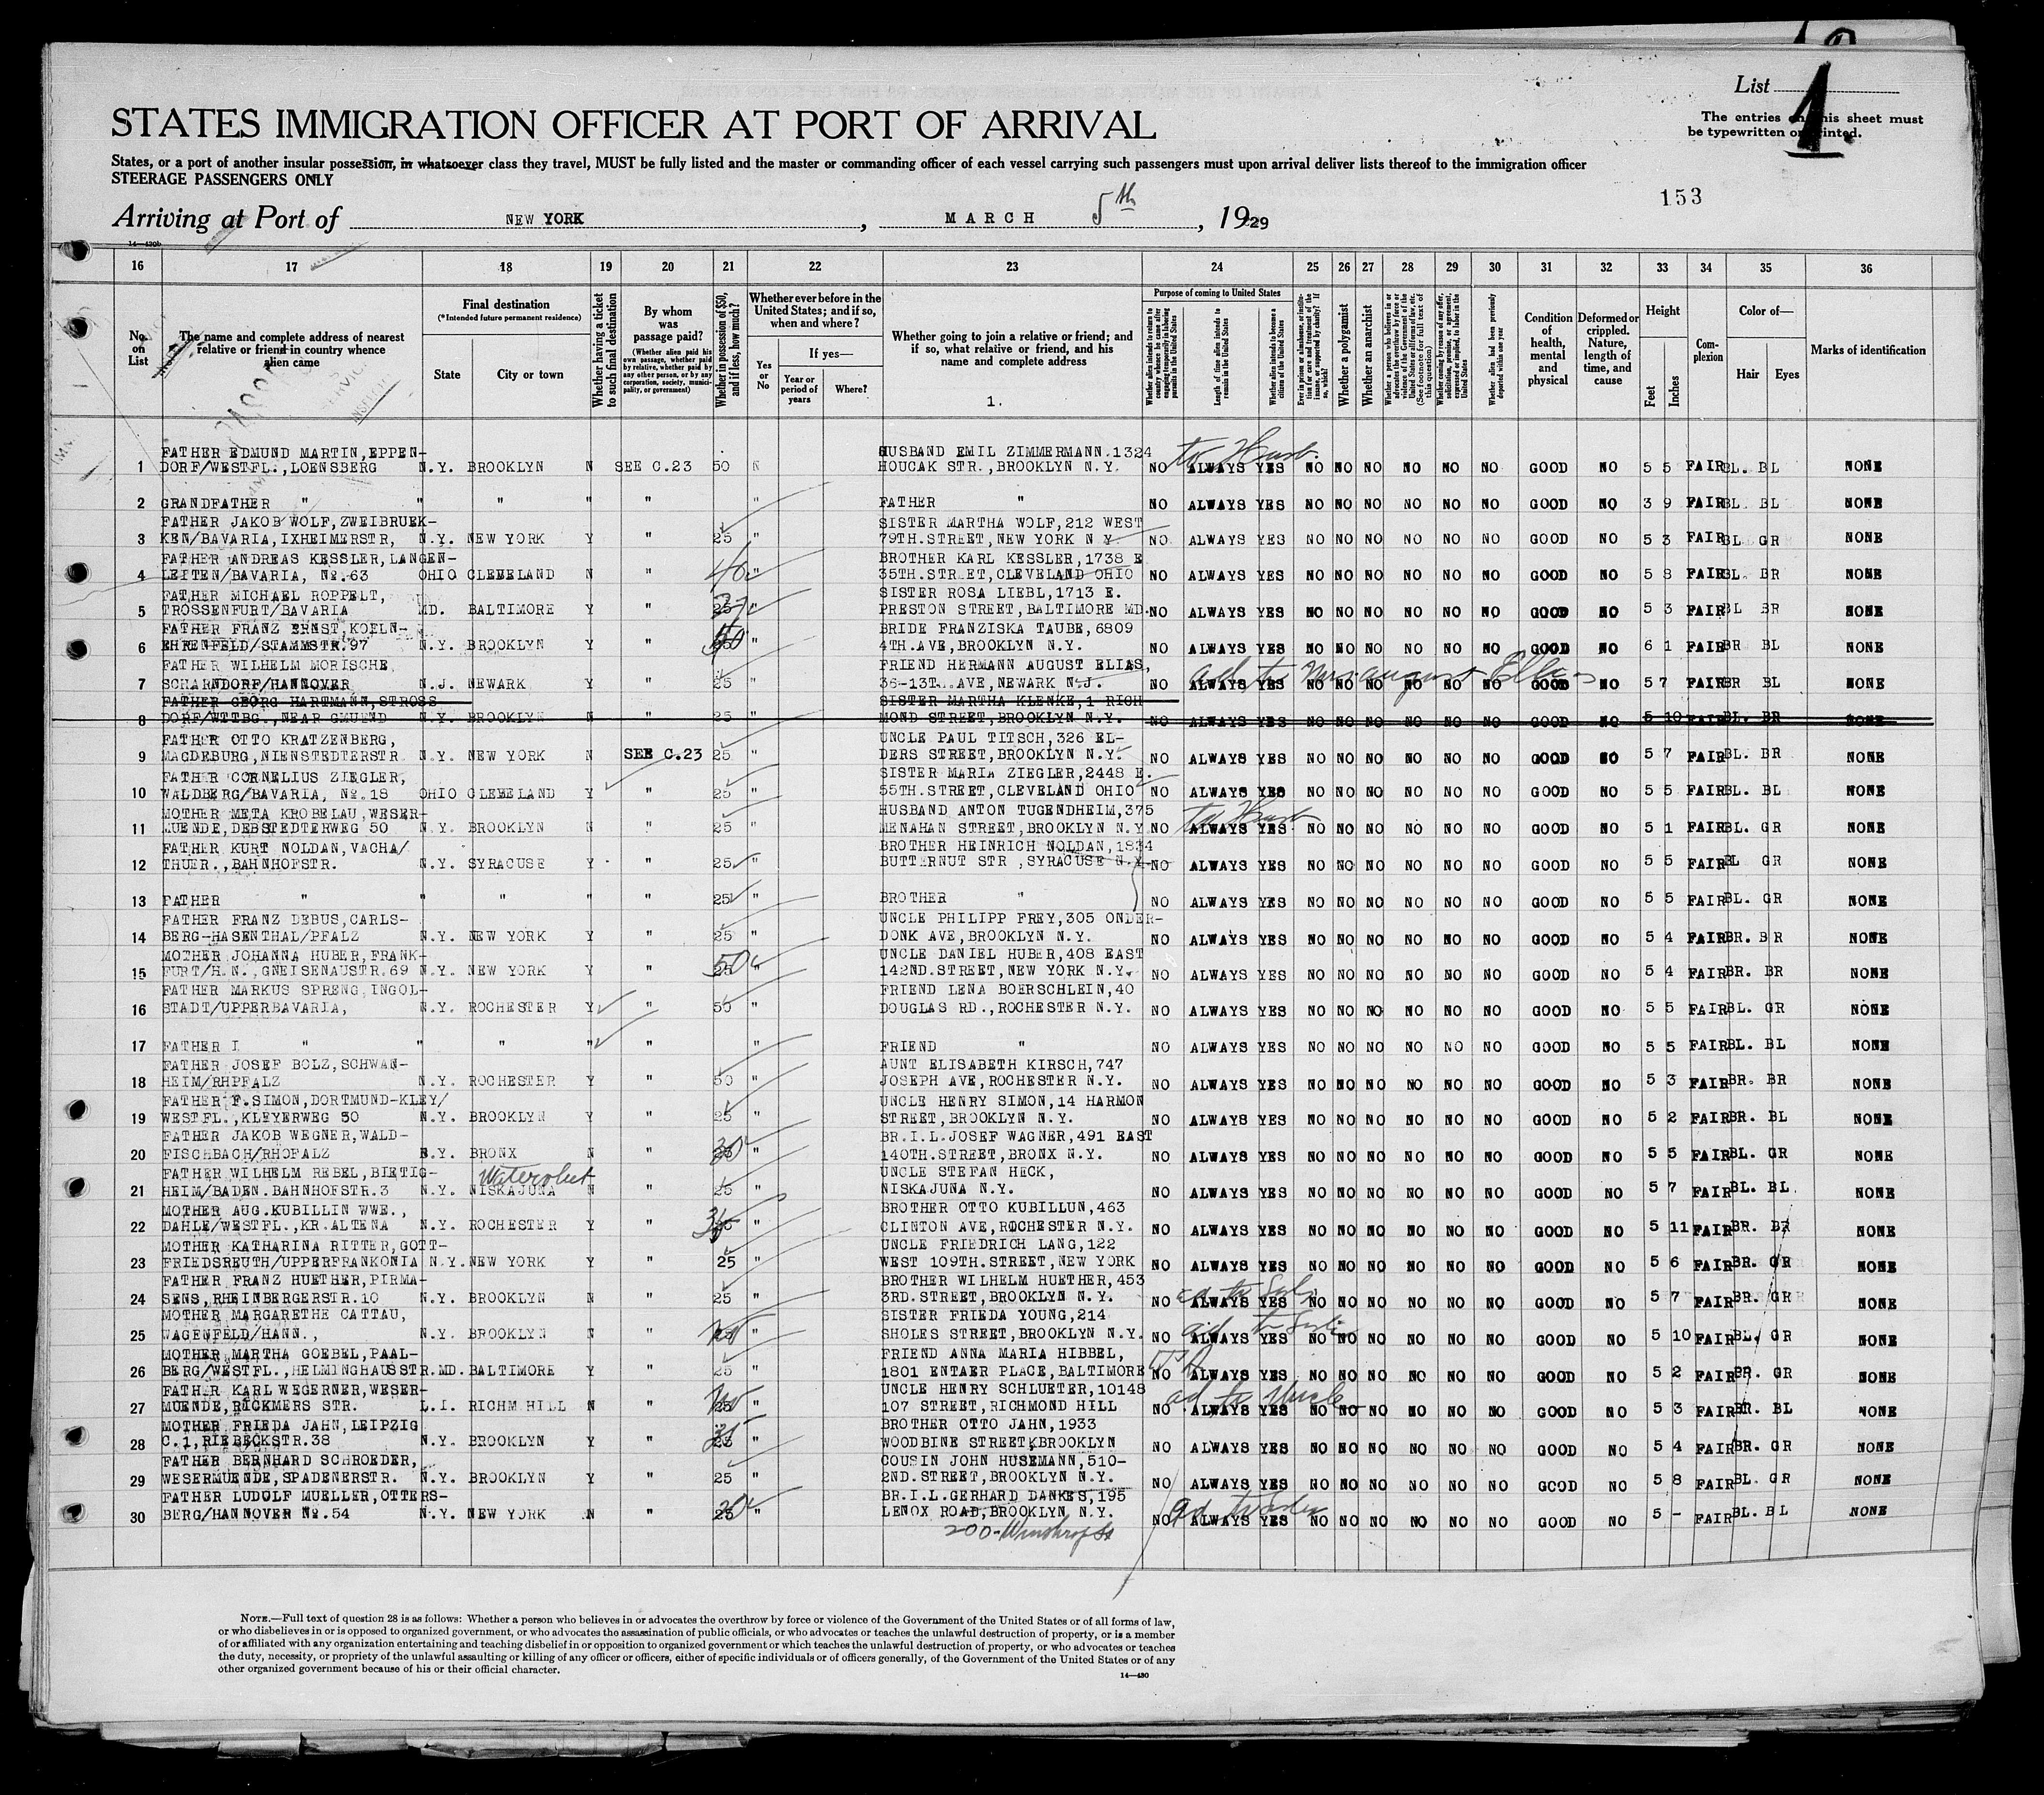 List 1.
STATES IMMIGRATION OFFICER AT PORT OF ARRIVAL
The entries on this sheet must
be typewritten or printed.
States, or a port of another insular possession, in whatsoever class they travel, MUST be fully listed and the master or commanding officer of each vessel carrying such passengers must upon arrival deliver lists thereof to the immigration officer
STEERAGE PASSENGERS ONLY
153
Arriving at Port of NEW YORK, MARCH 5th, 1929
14—430b
16 17 18 19 20 21 22 23 24 25 26 27 28 29 30 31 32 33 34 35 36
No. on List
The name and complete address of nearest relative or friend in country whence alien came
Final destination
(*Intended future permanent residence)
State
City or town
Whether having a ticket to such final destination
By whom was passage paid?
(Whether alien paid his own passage, whether paid by relative, whether paid by any other person, or by any corporation, society, municipality, or government)
Whether in possession of $50, and if less, how much?
Whether ever before in the United States; and if so, when and where?
Yes or No
If yes—
Year or period of years
Where?
Whether going to join a relative or friend; and if so, what relative or friend, and his name and complete address
1.
Purpose of coming to United States
Whether alien intends to return to country whence he came after engaging temporarily in laboring pursuits in the United States
Length of time alien intends to remain in the United States
Whether alien intends to become a citizen of the United States
Ever in prison or almshouse, or institution for care and treatment of the insane, or supported by charity? If so, which?
Whether a polygamist
Whether an anarchist
Whether a person who believes in or advocates the overthrow by force or violence of the Government of the United States or all forms of law, etc. (See footnote for full text of this question)
Whether coming by reason of any offer, solicitation, promise, or agreement, expressed or implied, to labor in the United States
Whether alien had been previously deported within one year
Condition of health, mental and physical
Deformed or crippled. Nature, length of time, and cause
Height
Feet
Inches
Complexion
Color of—
Hair
Eyes
Marks of identification
FATHER EDMUND MARTIN,EPPEN- HUSBAND EMIL ZIMMERMANN.1324 to Husb.
1 DORF/WESTFL.,LOENSBERG N.Y. BROOKLYN N SEE C.23 50 N HOUCAK STR.,BROOKLYN N.Y. NO ALWAYS YES NO NO NO NO NO NO GOOD NO 5 5 FAIR BL. BL NONE
2 GRANDFATHER " " " " " " FATHER " NO ALWAYS YES NO NO NO NO NO NO GOOD NO 3 9 FAIR BL. BL NONE
FATHER JAKOB WOLF,ZWEIBRUEK- SISTER MARTHA WOLF,212 WEST
3 KEN/BAVARIA,IXHEIMERSTR, N.Y. NEW YORK Y " 25 " 79TH.STREET,NEW YORK N Y NO ALWAYS YES NO NO NO NO NO NO GOOD NO 5 3 FAIR BL GR NONE
FATHER ANDREAS KESSLER,LANGEN- BROTHER KARL KESSLER,1738 E
4 LEITEN/BAVARIA, No.63 OHIO CLEVELAND N " 40 " 35TH.STREET,CLEVELAND OHIO NO ALWAYS YES NO NO NO NO NO NO GOOD NO 5 8 FAIR BL. BR NONE
FATHER MICHAEL ROPPELT, SISTER ROSA LIEBL,1713 E.
5 TROSSENFURT/BAVARIA MD. BALTIMORE Y " 25 " PRESTON STREET,BALTIMORE MD. NO ALWAYS YES NO NO NO NO NO NO GOOD NO 5 3 FAIR BL BR NONE
FATHER FRANZ ERNST,KOELN- BRIDE FRANZISKA TAUBE,6809
6 EHRENFELD/STAMMSTR.97 N.Y. BROOKLYN Y " " 4TH.AVE,BROOKLYN N.Y. NO ALWAYS YES NO NO NO NO NO NO GOOD NO 6 1 FAIR BR BL NONE
FATHER WILHELM MORISCHE FRIEND HERMANN AUGUST ELIAS, ad to Mrs. August Elias
7 SCHARNDORF/HANNOVER N.J. NEWARK Y " 25 " 36-13T. AVE,NEWARK N.J. NO ALWAYS YES NO NO NO NO NO NO GOOD NO 5 7 FAIR BR BL NONE
FATHER GEORG HARTMANN,STROSS SISTER MARTHA KLENKE,1 RICH
8 DORF/WTTBG.,NEAR GMUEND N.Y. BROOKLYN N " 25 " MOND STREET,BROOKLYN N.Y. NO ALWAYS YES NO NO NO NO NO NO GOOD NO 5 10 FAIR BL. BR NONE
FATHER OTTO KRATZENBERG, UNCLE PAUL TITSCH,326 EL-
9 MAGDEBURG,NIENSTEDTERSTR N.Y. NEW YORK N SEE C.23 25 " DERS STREET,BROOKLYN N.Y. NO ALWAYS YES NO NO NO NO NO NO GOOD NO 5 7 FAIR BL. BR NONE
FATHER CORNELIUS ZIEGLER, SISTER MARIA ZIEGLER,2448 E.
10 WALDBERG/BAVARIA, No.18 OHIO CLEVELAND Y " 25 " 55TH.STREET,CLEVELAND OHIO NO ALWAYS YES NO NO NO NO NO NO GOOD NO 5 5 FAIR BL. BL NONE
MOTHER META KROBELAU,WESER- HUSBAND ANTON TUGENDHEIM,375 to Husb
11 MUENDE,DEBSTEDTERWEG 50 N.Y. BROOKLYN N " 25 " MENAHAN STREET,BROOKLYN N.Y NO ALWAYS YES NO NO NO NO NO NO GOOD NO 5 1 FAIR BL. GR NONE
FATHER KURT NOLDAN,VACHA/ BROTHER HEINRICH NOLDAN,1834
12 THUER.,BAHNHOFSTR. N.Y. SYRACUSE Y " 25 " BUTTERNUT STR ,SYRACUSE N.Y. NO ALWAYS YES NO NO NO NO NO NO GOOD NO 5 5 FAIR BL GR NONE
13 FATHER " " " " " 25 " BROTHER " NO ALWAYS YES NO NO NO NO NO NO GOOD NO 5 5 FAIR BL. GR NONE
FATHER FRANZ DEBUS,CARLS- UNCLE PHILIPP FREY,305 ONDER-
14 BERG-HASENTHAL/PFALZ N.Y. NEW YORK Y " 25 " DONK AVE,BROOKLYN N.Y. NO ALWAYS YES NO NO NO NO NO NO GOOD NO 5 4 FAIR BR. BR NONE
MOTHER JOHANNA HUBER,FRANK- UNCLE DANIEL HUBER,408 EAST
15 FURT/H.N.,GNEISENAUSTR.69 N.Y. NEW YORK Y " 50 " 142ND.STREET,NEW YORK N.Y. NO ALWAYS YES NO NO NO NO NO NO GOOD NO 5 4 FAIR BR. BR NONE
FATHER MARKUS SPRENG,INGOL- FRIEND LENA BOERSCHLEIN,40
16 STADT/UPPERBAVARIA, N.Y. ROCHESTER Y " 50 " DOUGLAS RD.,ROCHESTER N.Y. NO ALWAYS YES NO NO NO NO NO NO GOOD NO 5 5 FAIR BL. GR NONE
17 FATHER I " " " " " " FRIEND " NO ALWAYS YES NO NO NO NO NO NO GOOD NO 5 5 FAIR BL. BL NONE
FATHER JOSEF BOLZ,SCHWAN- AUNT ELISABETH KIRSCH,747
18 HEIM/RHPFALZ N.Y. ROCHESTER Y " 50 " JOSEPH AVE,ROCHESTER N.Y. NO ALWAYS YES NO NO NO NO NO NO GOOD NO 5 3 FAIR BR. BR NONE
FATHER F.SIMON,DORTMUND-KLEY/ UNCLE HENRY SIMON,14 HARMON
19 WESTFL.,KLEYERWEG 50 N.Y. BROOKLYN Y " 25 " STREET,BROOKLYN N.Y. NO ALWAYS YES NO NO NO NO NO NO GOOD NO 5 2 FAIR BR. BL NONE
FATHER JAKOB WEGNER,WALD- BR.I.L.JOSEF WAGNER,491 EAST
20 FISCHBACH/RHOFALZ N.Y. BRONX N " 30 " 140TH.STREET,BRONX N.Y. NO ALWAYS YES NO NO NO NO NO NO GOOD NO 5 5 FAIR BL. GR NONE
FATHER WILHELM REBEL,BIETIG- Watervliet UNCLE STEFAN HECK,
21 HEIM/BADEN.BAHNHOFSTR.3 N.Y. NISKAJUNA N " 25 " NISKAJUNA N.Y. NO ALWAYS YES NO NO NO NO NO NO GOOD NO 5 7 FAIR BL. BL. NONE
MOTHER AUG.KUBILLIN WWE., BROTHER OTTO KUBILLUN,463
22 DAHLE/WESTFL.,KR.ALTENA N.Y. ROCHESTER Y " " CLINTON AVE,ROCHESTER N.Y. NO ALWAYS YES NO NO NO NO NO NO GOOD NO 5 11 FAIR BR. BR NONE
MOTHER KATHARINA RITTER,GOTT- UNCLE FRIEDRICH LANG,122
23 FRIEDSREUTH/UPPERFRANKONIA N.Y. NEW YORK Y " 25 " WEST 109TH.STREET,NEW YORK NO ALWAYS YES NO NO NO NO NO NO GOOD NO 5 6 FAIR BR. GR NONE
FATHER FRANZ HUETHER,PIRMA- BROTHER WILHELM HUETHER,453
24 SENS,RHEINBERGERSTR.10 N.Y. BROOKLYN N " 25 " 3RD.STREET,BROOKLYN N.Y. NO ALWAYS YES NO NO NO NO NO NO GOOD NO 5 7 FAIR BR. GR NONE
MOTHER MARGARETHE CATTAU, SISTER FRIEDA YOUNG,214
25 WAGENFELD/HANN., N.Y. BROOKLYN N " " SHOLES STREET,BROOKLYN N.Y. NO ALWAYS YES NO NO NO NO NO NO GOOD NO 5 10 FAIR BL. GR NONE
MOTHER MARTHA GOEBEL,PAAL- FRIEND ANNA MARIA HIBBEL,
26 BERG/WESTFL.,HELMINGHAUSSTR. MD. BALTIMORE Y " 25 " 1801 ENTAER PLACE,BALTIMORE NO ALWAYS YES NO NO NO NO NO NO GOOD NO 5 2 FAIR BR. GR NONE
FATHER KARL WEGERNER,WESER- UNCLE HENRY SCHLUETER,10148 ad to Uncle
27 MUENDE,RICKMERS STR. L.I. RICHM HILL N " 25 " 107 STREET,RICHMOND HILL NO ALWAYS YES NO NO NO NO NO NO GOOD NO 5 3 FAIR BR. BL NONE
MOTHER FRIEDA JAHN,LEIPZIG BROTHER OTTO JAHN,1933
28 C.1,RIEBECKSTR.38 N.Y. BROOKLYN Y " 25 " WOODBINE STREET,BROOKLYN NO ALWAYS YES NO NO NO NO NO NO GOOD NO 5 4 FAIR BR. GR NONE
FATHER BERNHARD SCHROEDER, COUSIN JOHN HUSEMANN,510-
29 WESERMUENDE,SPADENERSTR. N.Y. BROOKLYN Y " 25 " 2ND.STREET,BROOKLYN N.Y. NO ALWAYS YES NO NO NO NO NO NO GOOD NO 5 8 FAIR BL. GR NONE
FATHER LUDOLF MUELLER,OTTERS- BR.I.L.GERHARD DANKES,195
30 BERG/HANNOVER No.54 N.Y. NEW YORK N " 25 " LENOX ROAD,BROOKLYN N.Y. NO ALWAYS YES NO NO NO NO NO NO GOOD NO 5 - FAIR BL. BL NONE
200-Winthrop St
NOTE.—Full text of question 28 is as follows: Whether a person who believes in or advocates the overthrow by force or violence of the Government of the United States or of all forms of law,
or who disbelieves in or is opposed to organized government, or who advocates the assassination of public officials, or who advocates or teaches the unlawful destruction of property, or is a member
of or affiliated with any organization entertaining and teaching disbelief in or opposition to organized government or which teaches the unlawful destruction of property, or who advocates or teaches
the duty, necessity, or propriety of the unlawful assaulting or killing of any officer or officers, either of specific individuals or of officers generally, of the Government of the United States or of any
other organized government because of his or their official character.
14—430